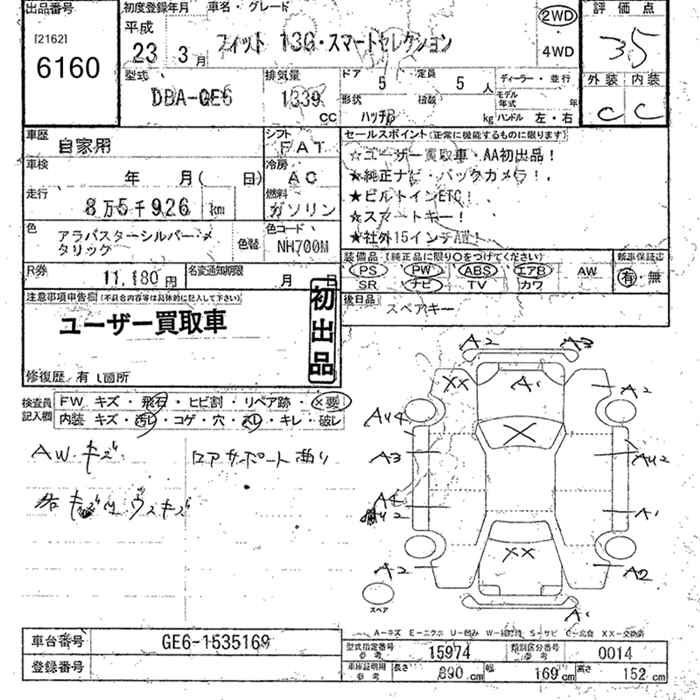 出品番号
[2162]
6160
初度登録年月
平成
23年3月
車名・グレード
フィット 13G・スマートセレクション
2WD
4WD
評価点
3.5
外装 内装
C C
型式
DBA-GE6
排気量
1339 CC
ドア 5
定員 5人
形状 ハッチB
積載 kg
ディーラー・並行
モデル年式 年
ハンドル 左・右
車歴
自家用
シフト
FAT
車検
年 月( 日)
冷房
AC
走行
8万5千926 km
燃料
ガソリン
色
アラバスターシルバーメタリック
色替
色コード
NH700M
R券
11,180円
名変通知期限
月 日
セールスポイント(正常に機能するものに限ります)
☆ユーザー買取車・AA初出品!
★純正ナビ・バックカメラ!
★ビルトインETC!
☆スマートキー!
★社外15インチAW!
装備品(純正品に限り○をつけてください)
PS PW ABS エアB AW
SR ナビ TV カワ
新車保証書
有・無
後日品
スペアキー
注意事項申告欄(不具合内容等は具体的に記入して下さい)
ユーザー買取車
初出品
修復歴 有 箇所
検査員記入欄
FW キズ・飛石・ヒビ割・リペア跡・X要
内装 キズ・汚レ・コゲ・穴・スレ・キレ・破レ
AW キズ
コアサポート曲り
ウスキズ
A2
XX
A1
A2
A3
X
A1
XX
A2
A2
スペア
A1
A-キズ E-エクボ U-凹み S-サビ XX-交換済
車台番号
GE6-1535169
登録番号
型式指定番号 参考
15974
類別区分番号 参考
0014
車庫証明用 参考
長さ 390cm
幅 169cm
高さ 152cm